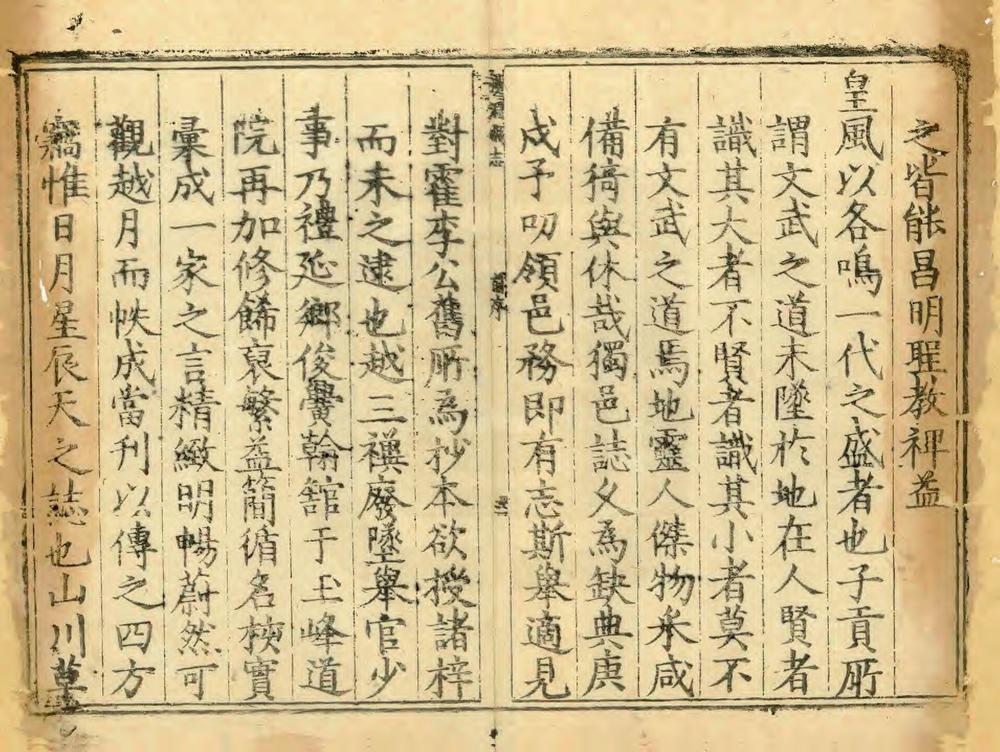 之皆能昌明聖教裨益
皇風以各鳴一代之盛者也子貢所
謂文武之道未墜於地在人賢者
識其大者不賢者識其小者莫不
有文武之道焉地靈人傑物釆咸
備猗與休哉獨邑誌乂為缺典庚
戍予叨領邑務即有志斯舉適見
縣志
舊序
對霍李公舊所為抄本欲授諸梓
而未之逮也越三禩廢墜舉官少
事乃禮延鄉俊黌翰舘于玉峰道
院再加修餙裒繁益簡循名核實
彙成一家之言精緻明暢蔚然可
觀越月而帙成當刋以傳之四方
竊惟日月星辰天之誌也山川草